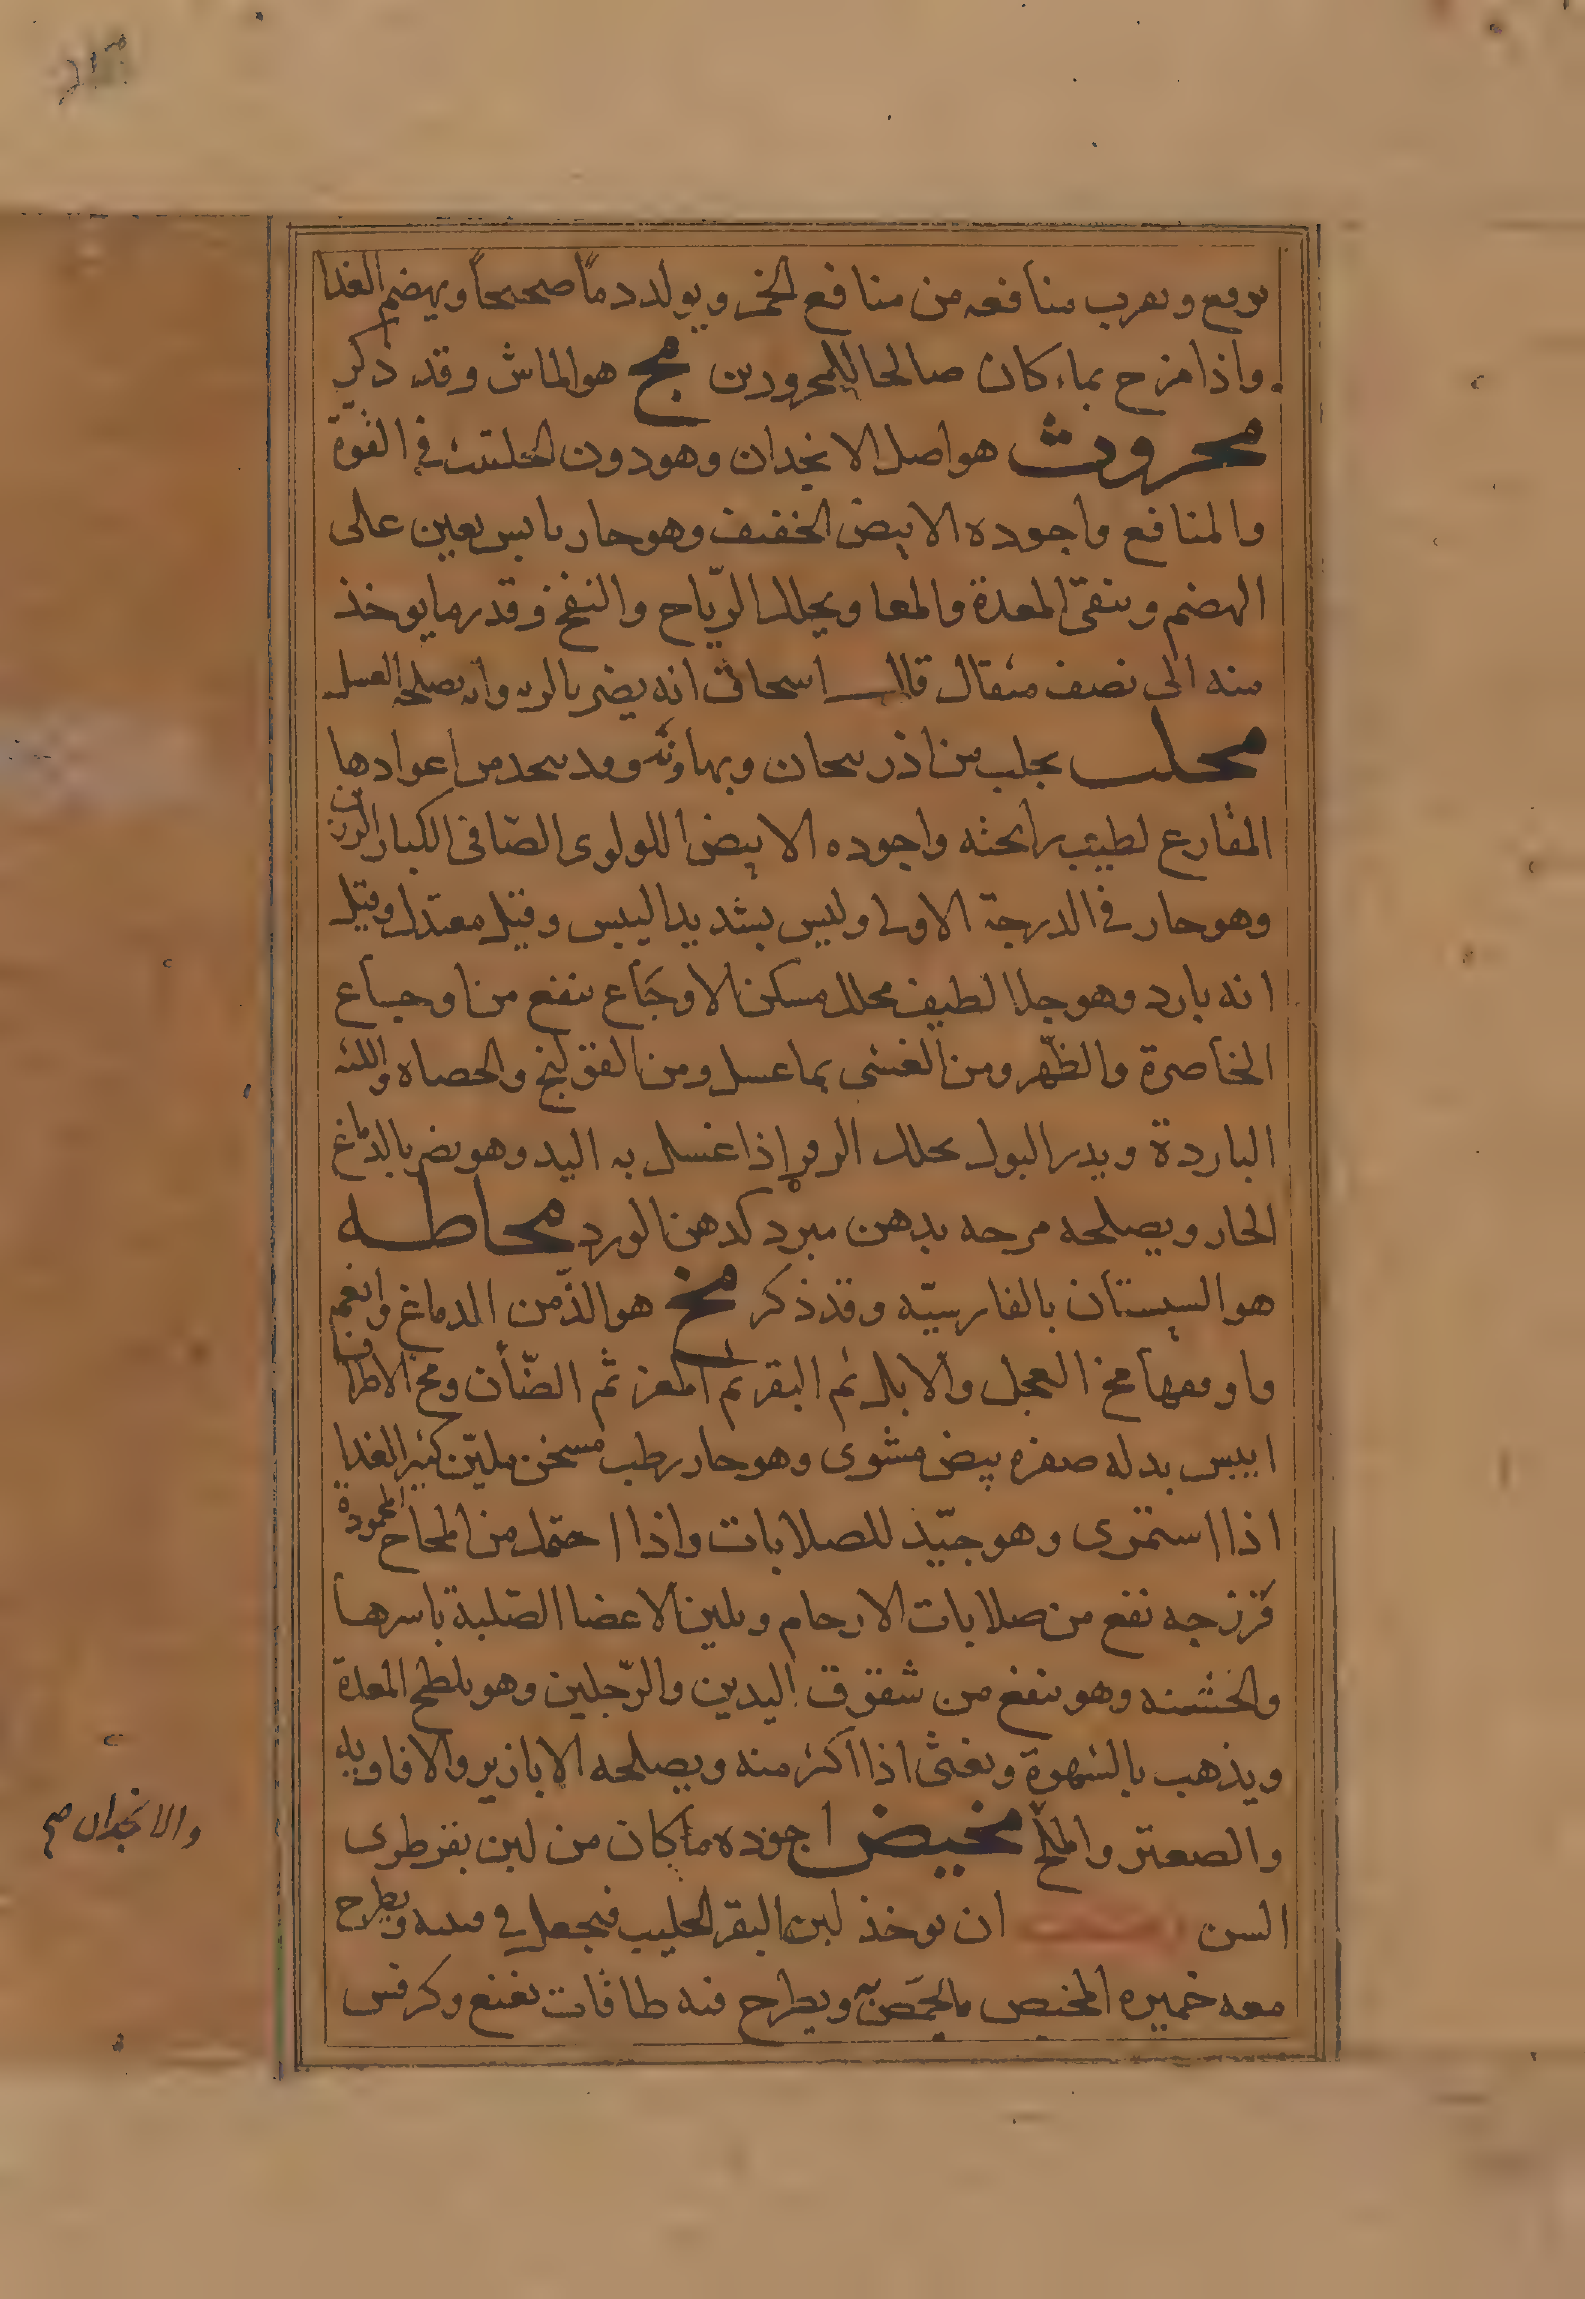 ويقرب منافعه من منافع الخمر ويولد دما صحيحاً ويهضم الغذا
واذا مزج بماء كان صالحا للمحرورين مج هو الماش وقد ذكر
محروث هو اصل الانجدان وهو دون الحلتيت في القوة
والمنافع واجوده الابيض الخفيف وهو حار يابس يعين على
الهضم وينقى المعدة والمعا ويحلل الرّياح والنفخ وقدر ما يوخذ
منه الى نصف مثقال قال اسحاق انه يضر بالريه وانه يصلحه العسل
محلب يجلب من اذربيجان وبهاوند وقد يتخذ من اعوادها
المقارع لطيب رائحته واجوده الابيض اللولوى الصّافى الكبار
وهو حار في الدرجة الاولى وليس بشديد اليبس وقيل معتدل وقيل
انه بارد وهو جلا لطيف محلل مسكن الاوجَاع ينفع من اوجاع
الخاصرة والظّهر ومن الغشى بماعسل ومن القولنج والحصاه
الباردة ويدر البول يحلل اذا غسل به اليد وهو يضر بالدماغ
الحار ويصلحه مرحه بدهن مبرد كدهن الورد محاطه
هو السبستان بالفارسيّه وقد ذكر مخ هو الذّ من الدماغ وانعم
مخ العجل والابل ثم البقر ثم المعز ثم الضّأن ومخ الاطراف
ايبس بدله صفره بيض مشوى وهو حار رطب مسخن ملين كثير الغدا
اذا استمرى وهو جيّد للصلابات واذا احتمل من المخاخ المحمودة
فرزجه نفع من صلابات الارحام ويلين الاعضا الصّلبة باسرها
والخشنه وهو ينفع من شقوق اليدين والرّجلين وهو يلطخ المعدة
ويذهب بالشهوة ويغثى اذا اكثر منه ويصلحه الابازير والافاويه
والصعتر والملح مخيض اجوده ما كان من لبن بقر طرى
السن ان يوخذ لبن البقر الحليب فيجعل في ويطرح
معه خميره المخيض ويطرح فيه طاقات نعنع وكرفس
والانجدان صح